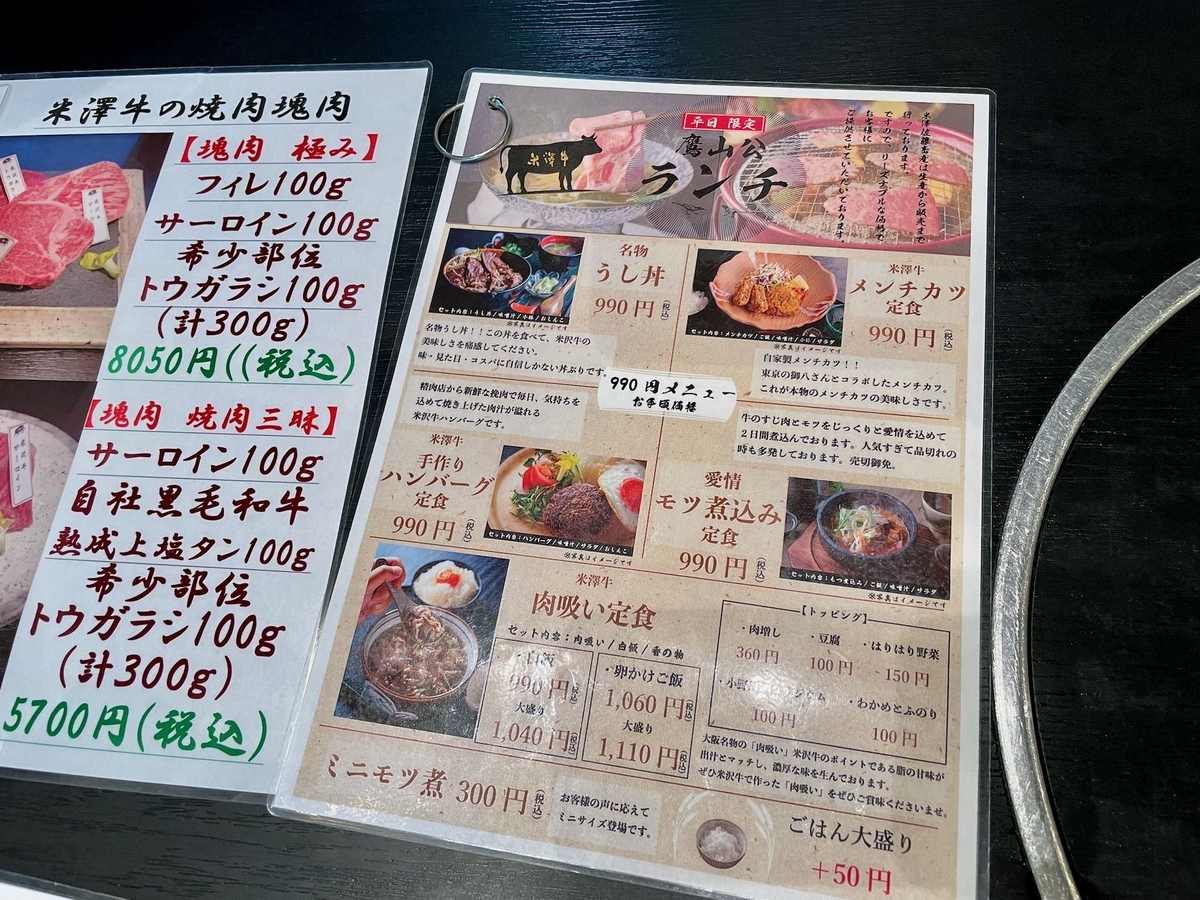 米澤牛の焼肉塊肉
【塊肉 極み】
フィレ100g
サーロイン100g
希少部位
トウガラシ100g
(計300g)
8050円((税込)
【塊肉 焼肉三昧】
サーロイン100g
自社黒毛和牛
熟成上塩タン100g
希少部位
トウガラシ100g
(計300g)
5700円(税込)
米澤牛
平日限定
鷹山公
ランチ
米澤佐藤畜産は生産から販売まで
行っております。
ですので、リーズナブルな価格で
お客様に
ご提供させていただいております。
名物
うし丼
990円(税込)
セット内容：うし丼/味噌汁/小鉢/おしんこ
※写真はイメージです
名物うし丼！！この丼を食べて、米沢牛の
美味しさを痛感してください。
味・見た目・コスパに自信しかない丼ぶりです。
米澤牛
メンチカツ
定食
990円(税込)
セット内容：メンチカツ/ご飯/味噌汁/小鉢/サラダ
※写真はイメージです
自家製メンチカツ！！
東京の御八さんとコラボしたメンチカツ。
これが本物のメンチカツの美味しさです。
990円メニュー
お手頃価格
精肉店から新鮮な挽肉で毎日、気持ちを
込めて焼き上げた肉汁が溢れる
米沢牛ハンバーグです。
米澤牛
手作り
ハンバーグ
定食
990円(税込)
セット内容：ハンバーグ/味噌汁/サラダ/おしんこ
※写真はイメージです
牛のすじ肉とモツをじっくりと愛情を込めて
２日間煮込んでおります。人気すぎて品切れの
時も多発しております。売切御免。
愛情
モツ煮込み
定食
990円(税込)
セット内容：もつ煮込み/ご飯/味噌汁/サラダ
※写真はイメージです
米澤牛
肉吸い定食
セット内容：肉吸い/白飯/香の物
・白飯
990円(税込)
大盛り
1,040円(税込)
・卵かけご飯
1,060円(税込)
大盛り
1,110円(税込)
【トッピング】
・肉増し
360円
・豆腐
100円
・はりはり野菜
150円
100円
・わかめとふのり
100円
大阪名物の「肉吸い」米沢牛のポイントである脂の甘味が
出汁とマッチし、濃厚な味を生んでおります。
ぜひ米沢牛で作った「肉吸い」をぜひご賞味くださいませ。
ミニモツ煮 300円(税込)
お客様の声に応えて
ミニサイズ登場です。
ごはん大盛り
＋50円